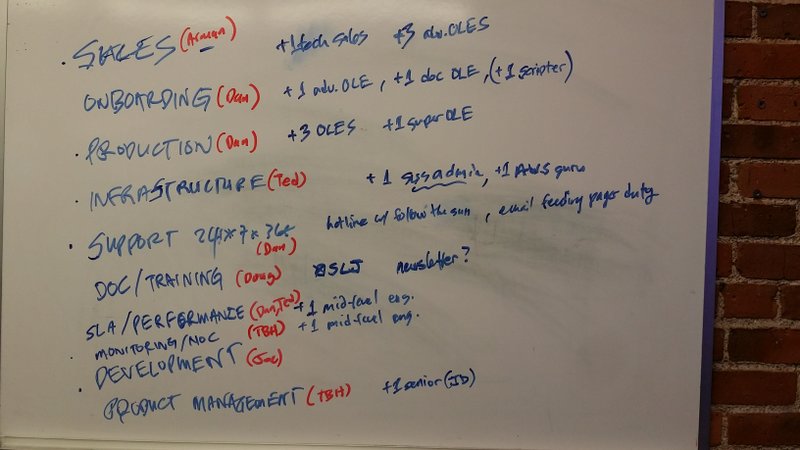 • SALES (Arman) +1 tech sales +3 adv. OLES
ONBOARDING (Dan) +1 adv. OLE, +1 doc OLE, (+1 scripter)
• PRODUCTION (Dan) +3 OLES +1 super OLE
• INFRASTRUCTURE (Ted) +1 sysadmin, +1 AWS guru
• SUPPORT 24*7*365 (Dan) hotline w/ follow the sun, email feeding pager duty
DOC/TRAINING (Doug) SLJ newsletter?
• SLA/PERFORMANCE (Dan, Ted) +1 mid-level eng.
• MONITORING/NOC (TBH) +1 mid-level eng.
• DEVELOPMENT (Joe)
• PRODUCT MANAGEMENT (TBH) +1 senior (JD)